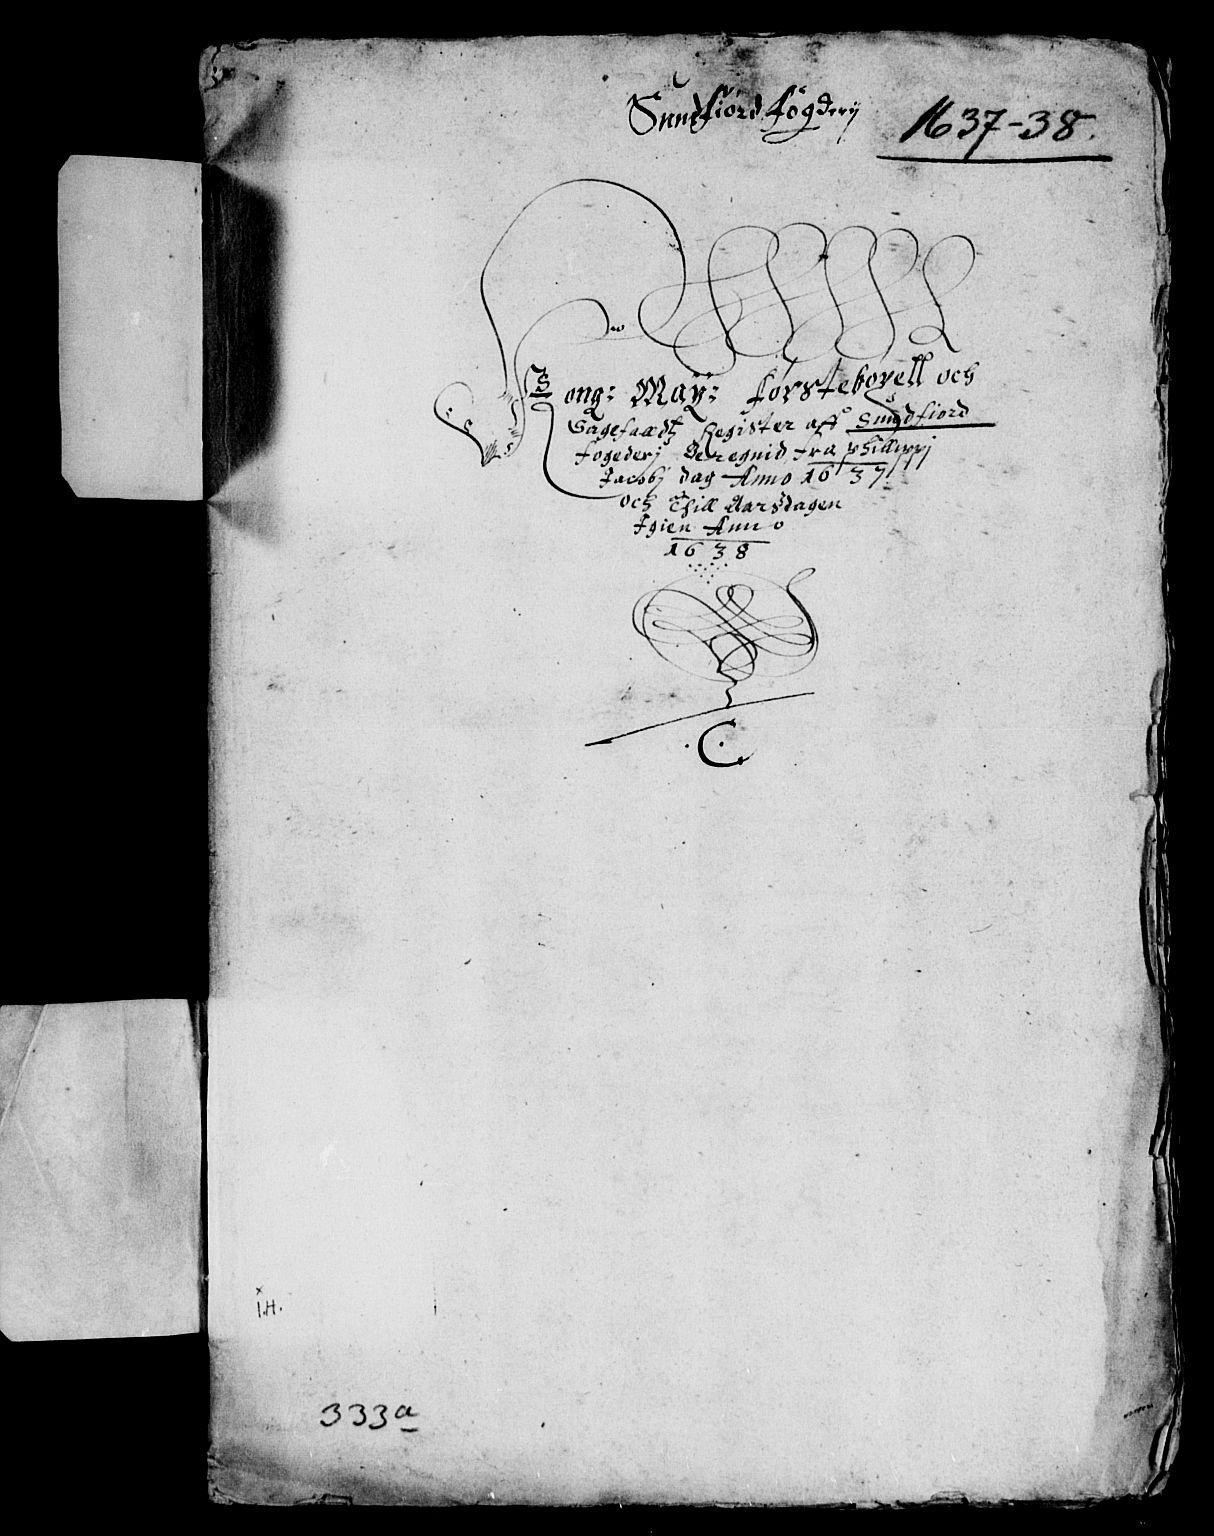 Sundfiord fögderij
1637-38.
Kong: May: førstebøxell och
Sagefaldtz Register aff Sundfiord
fogederj Beregnid fra philippj
Jacobj dag Anno 1637
och thill Aarsdagen
Igien Anno
1638
C
I.H.
333a